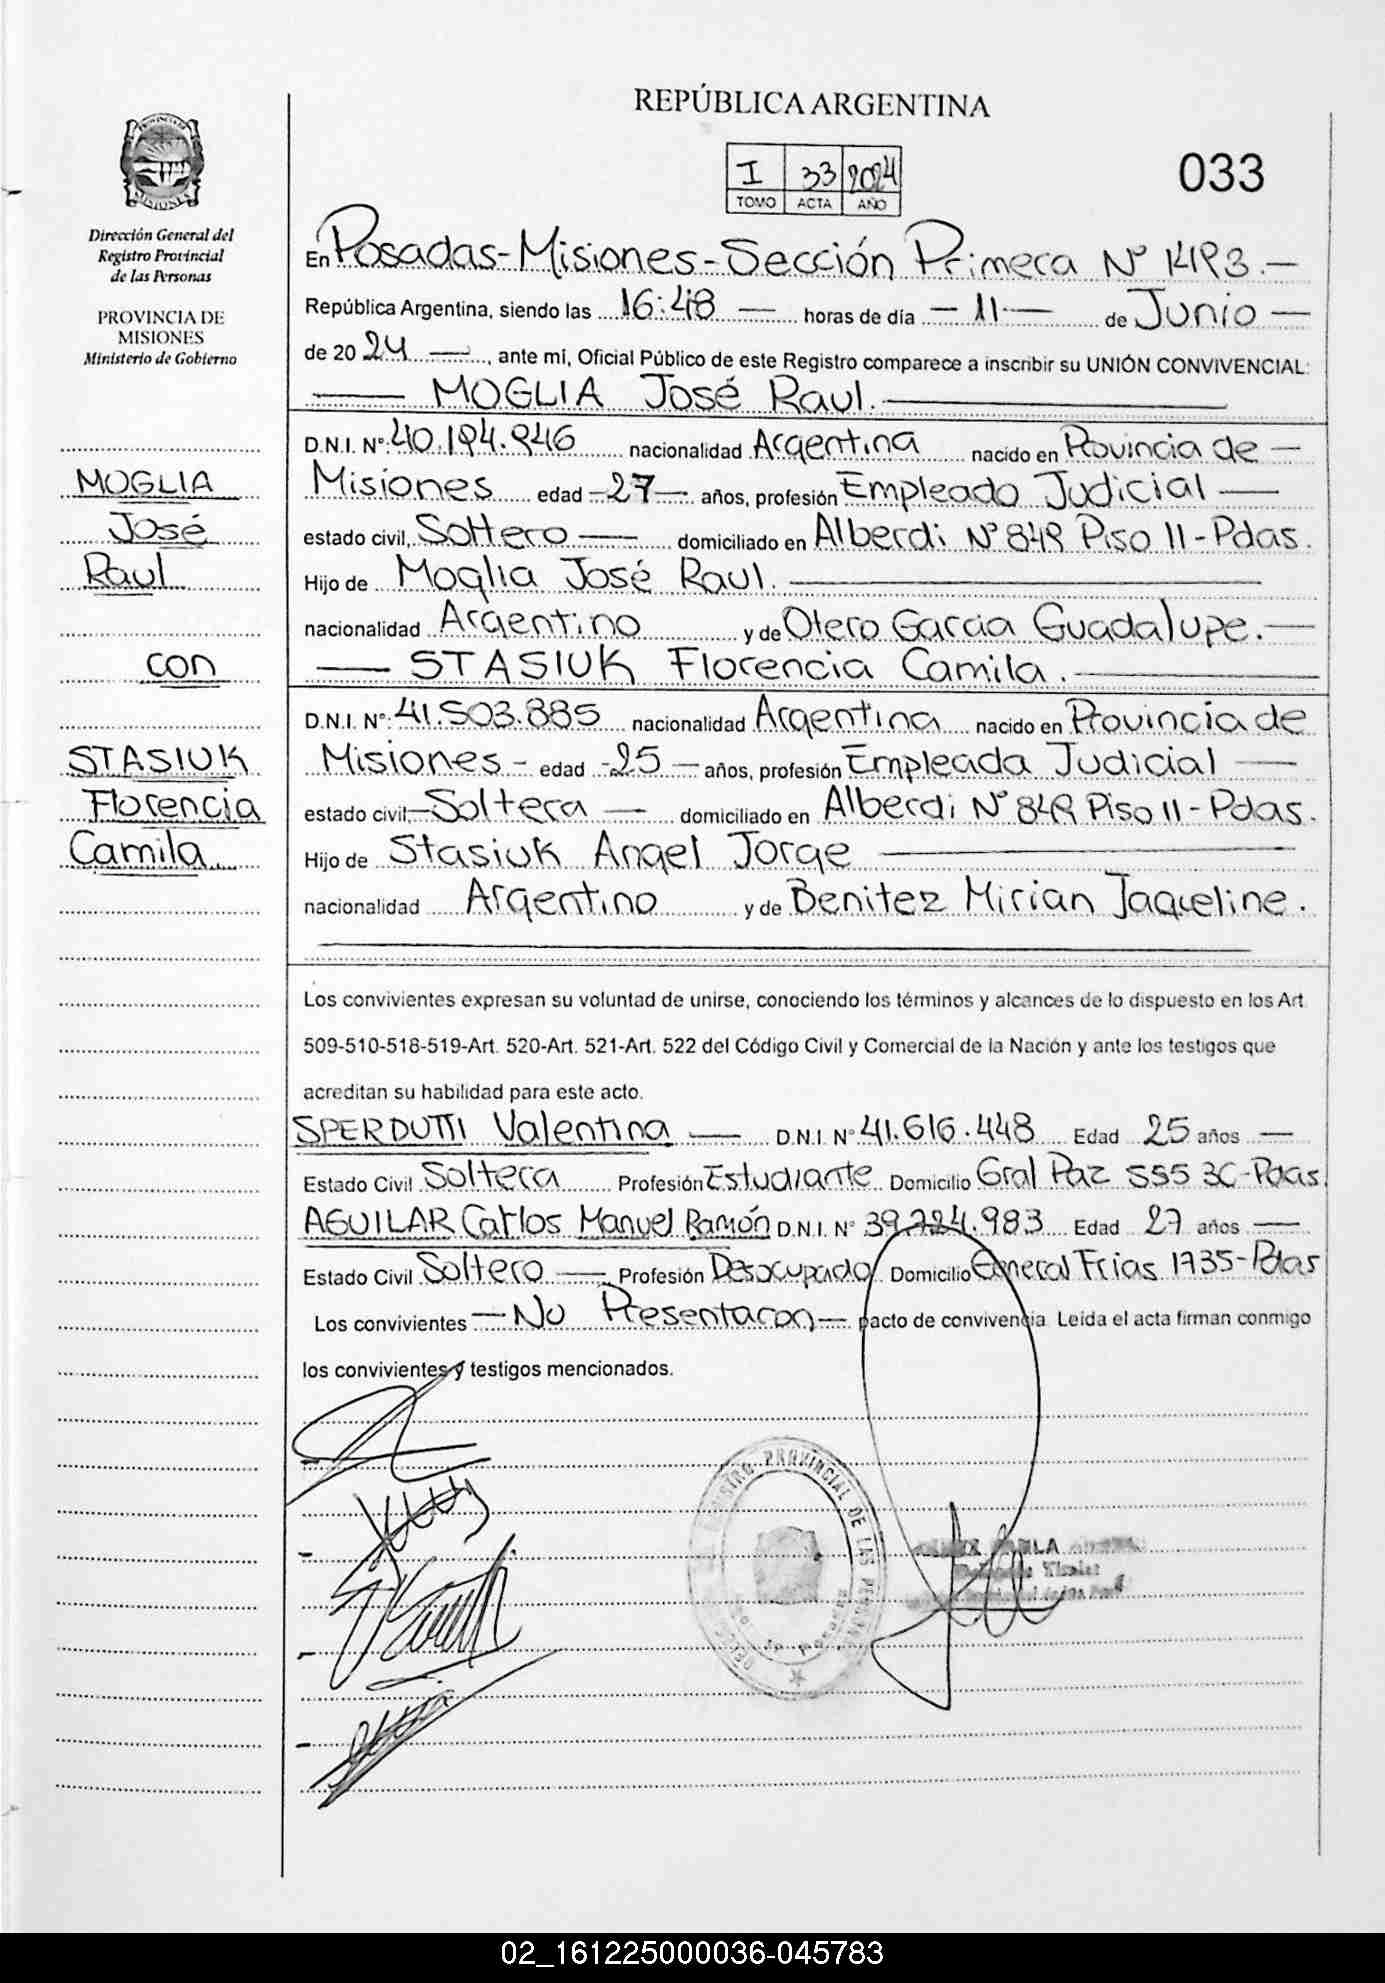 REPÚBLICA ARGENTINA
I 33 2024
TOMO ACTA AÑO
033
PROVINCIA DE
MISIONES
Dirección General del
Registro Provincial
de las Personas
PROVINCIA DE
MISIONES
Ministerio de Gobierno
MOGLIA
José
Raul
con
STASIUK
Florencia
Camila
En Posadas-Misiones-Sección Primera N° 1493.—
República Argentina, siendo las 16:48 — horas de día — 11 — de Junio —
de 20 24 —, ante mí, Oficial Público de este Registro comparece a inscribir su UNIÓN CONVIVENCIAL:
— MOGLIA José Raul. —
D.N.I. N°: 40.194.946 nacionalidad Argentina nacido en Provincia de —
Misiones edad -27- años, profesión Empleado Judicial —
estado civil, Soltero — domiciliado en Alberdi N° 849 Piso 11-Pdas.
Hijo de Moglia José Raul. —
nacionalidad Argentino y de Otero Garcia Guadalupe. —
— STASIUK Florencia Camila. —
D.N.I. N°: 41.503.885 nacionalidad Argentina nacido en Provincia de
Misiones - edad -25 — años, profesión Empleada Judicial —
estado civil,-Soltera — domiciliado en Alberdi N° 849 Piso 11-Pdas.
Hijo de Stasiuk Angel Jorge —
nacionalidad Argentino y de Benitez Mirian Jaqueline.
Los convivientes expresan su voluntad de unirse, conociendo los términos y alcances de lo dispuesto en los Art
509-510-518-519-Art. 520-Art. 521-Art. 522 del Código Civil y Comercial de la Nación y ante los testigos que
acreditan su habilidad para este acto.
SPERDUTTI Valentina — D.N.I. N° 41.616.448 Edad 25 años —
Estado Civil Soltera Profesión Estudiante Domicilio Gral Paz 555 3C-Pdas.
AGUILAR Carlos Manuel Ramón D.N.I. N° 39.724.983 Edad 27 años —
Estado Civil Soltero — Profesión Desocupado Domicilio General Frias 1735-Pdas
Los convivientes — No Presentaron — pacto de convivencia. Leida el acta firman conmigo
los convivientes y testigos mencionados.
REGISTRO PROVINCIAL DE LAS PERSONAS
Titular
02_161225000036-045783